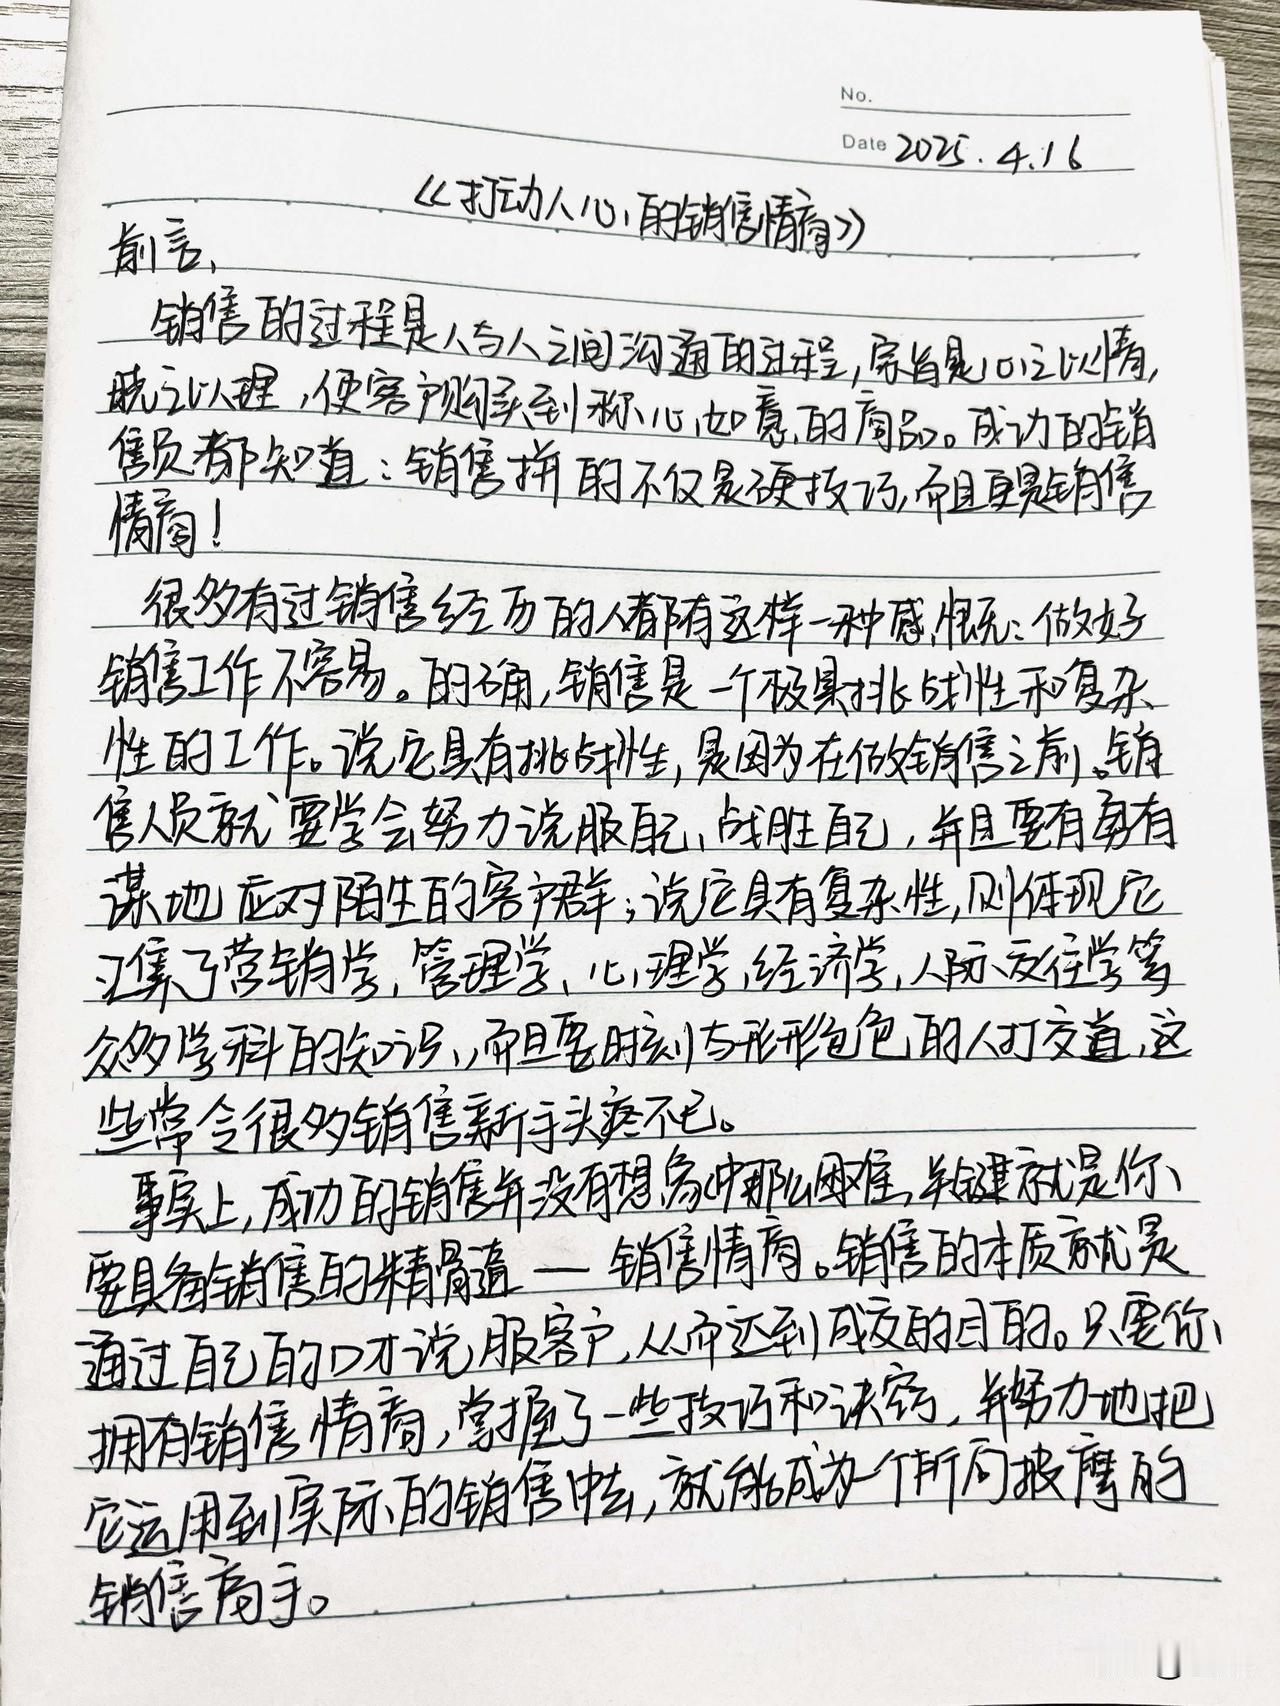 No.
Date 2025.4.16
《打动人心的销售情商》
前言、
销售的过程是人与人之间沟通的过程,宗旨是心之以情,
晓之以理,使客户购买到称心如意的商品。成功的销
售员都知道:销售拼的不仅是硬技巧,而且更是销售
情商!
很多有过销售经历的人都有这样一种感慨:做好
销售工作不容易。的确,销售是一个极具挑战性和复杂
性的工作。说它具有挑战性,是因为在做销售之前、销
售人员就要学会努力说服自己、战胜自己,并且要有勇有
谋地应对陌生的客户群;说它具有复杂性,则体现它
汇集了营销学,管理学、心理学,经济学,人际交往学等
众多学科的知识,而且要时刻与形形色色的人打交道,这
些常令很多销售新手头疼不已。
事实上,成功的销售并没有想象中那么困难,关键就是你
要具备销售的精髓——销售情商。销售的本质就是
通过自己的口才说服客户,从而达到成交的目的。只要你
拥有销售情商,掌握了一些技巧和诀窍,并努力地把
它运用到实际的销售中去,就能成为一个所向披靡的
销售高手。